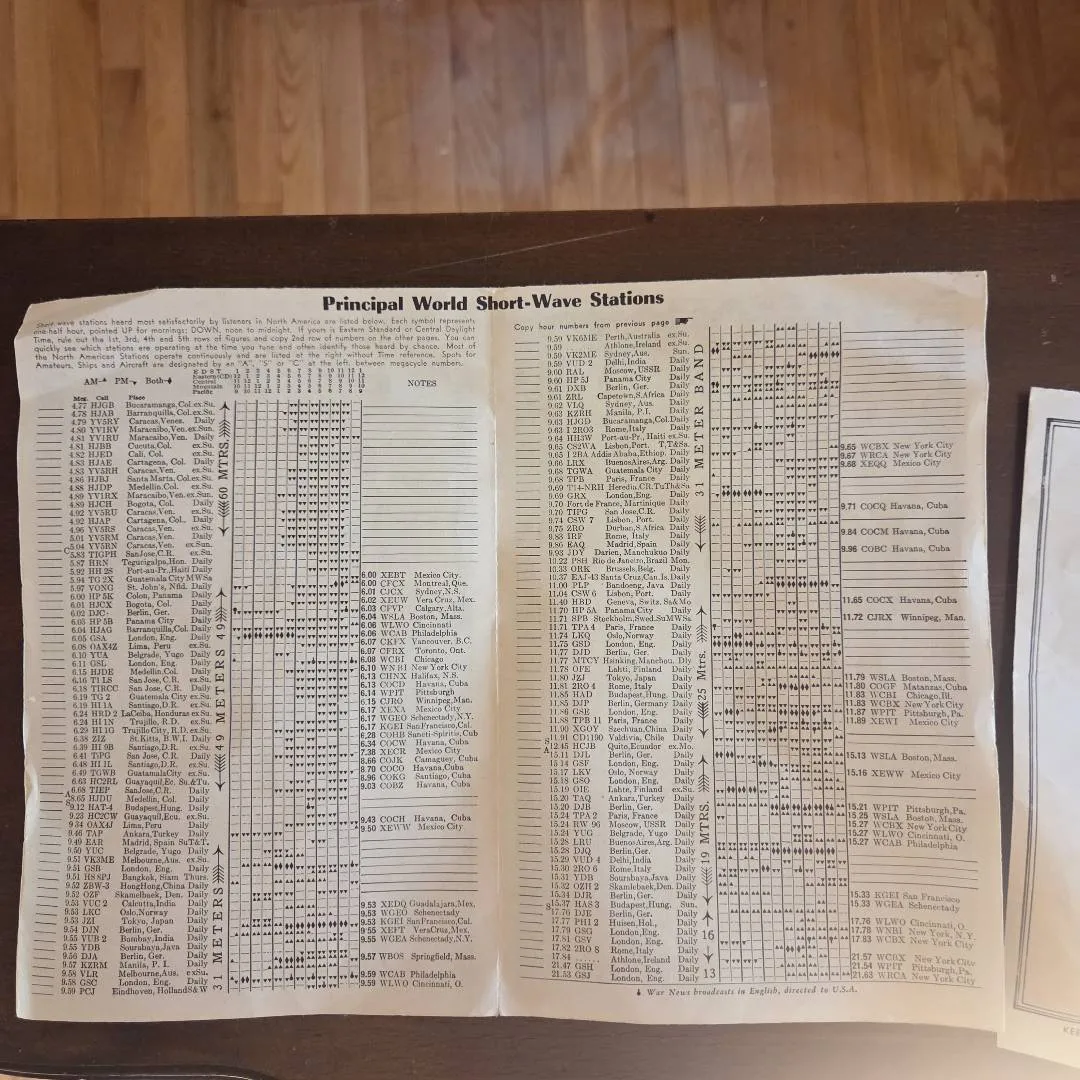 Principal World Short-Wave Stations
Short-wave stations heard most satisfactorily by listeners in North America are listed below. Each symbol represents
one-half hour, pointed UP for mornings; DOWN, noon to midnight. If yours is Eastern Standard or Central Daylight
Time, rule out the 1st, 3rd, 4th and 5th rows of figures and copy 2nd row of numbers on the other pages. You can
quickly see which stations are operating at the time you tune and often identify those heard by chance. Most of
the North American Stations operate continuously and are listed at the right without Time reference. Spots for
Amateurs, Ships and Aircraft are designated by an "A", "S" or "C" at the left, between megacycle numbers.
AM PM Both
E D S T 1 2 3 4 5 6 7 8 9 10 11 12 1
Eastern(CD) 12 1 2 3 4 5 6 7 8 9 10 11 12
Central 11 12 1 2 3 4 5 6 7 8 9 10 11
Mountain 10 11 12 1 2 3 4 5 6 7 8 9 10
Pacific 9 10 11 12 1 2 3 4 5 6 7 8 9
NOTES
Meg. Call Place
4.77 HJGB Bucaramanga,Col.ex.Su.
4.78 HJAB Barranquilla,Col.ex.Su.
4.79 YV5RY Caracas,Venez. Daily
4.80 YV1RV Maracaibo,Ven.ex.Sun.
4.81 YV1RU Maracaibo,Ven. Daily
4.81 HJBB Cucuta,Col. ex.Su.
4.82 HJED Cali, Col. ex.Su.
4.83 HJAE Cartagena, Col. Daily
4.83 YV5RH Caracas,Ven. ex.Su.
4.86 HJBJ Santa Marta,Col.ex.Su.
4.88 HJDP Medellin,Col. ex.Su.
4.89 YV1RX Maracaibo,Ven.ex.Sun.
4.89 HJCH Bogota, Col. Daily
4.92 YV5RU Caracas,Ven. ex.Su.
4.92 HJAP Cartagena, Col. Daily
4.96 YV5RS Caracas,Ven. ex.Su.
5.01 YV5RM Caracas,Ven. Daily
5.04 YV5RN Caracas,Ven. ex.Sun.
C
5.83 TIGPH SanJose,C.R. ex.Su.
5.87 HRN Tegucigalpa,Hon. Daily
5.92 HH 2S Port-au-Pr., Haiti Daily
5.94 TG 2X Guatemala City MWSa
5.97 VONG St. John's, Nfld. Daily
6.00 HP 5K Colon, Panama Daily
6.01 HJCX Bogota, Col. Daily
6.02 DJC Berlin, Ger. Daily
6.03 HP 5B Panama City Daily
6.04 HJAG Barranquilla,Col.Daily
6.05 GSA London, Eng. Daily
6.08 OAX4Z Lima, Peru ex.Su.
6.10 YUA Belgrade, Yugo Daily
6.11 GSL London, Eng. Daily
6.15 HJDE Medellin,Col. Daily
6.16 T1 LS San Jose, C.R. ex.Su.
6.18 TIRCC San Jose, C.R. Daily
6.19 TG 2 Guatemala City ex.Su.
6.19 HI 1A Santiago,D.R. ex.Su.
6.24 HRD 2 LaCeiba, Honduras ex.Su.
6.24 HI 1N Trujillo, R.D. ex.Su.
6.29 HI 1G Trujillo City,R.D. ex.Su.
6.38 ZIZ St.Kitts, B.W.I. Daily
6.39 HI 9B Santiago,D.R. ex.Su.
6.41 TiPG San Jose, C.R. Daily
6.48 HI 1L Santiago,D.R. ex.Su.
6.49 TGWB GuatemalaCity ex.Su.
6.63 HC2RL Guayaquil,Ec. Su.&Tu.
6.68 TIEP SanJose,C.R. Daily
A
S
8.65 HJDU Medellin, Col. Daily
9.12 HAT-4 Budapest,Hung. Daily
9.23 HC2CW Guayaquil,Ecu. ex.Su.
9.34 OAX4J Lima, Peru Daily
9.46 TAP Ankara,Turkey Daily
9.49 EAR Madrid, Spain SuT&T.
9.50 YUC Belgrade, Yugo Daily
9.51 VK3ME Melbourne,Aus. ex.Su.
9.51 GSB London, Eng. Daily
9.51 HS 8PJ Bangkok, Siam Thurs.
9.52 ZBW-3 HongHong,China Daily
9.52 OZF Skamelbaek, Den. Daily
9.53 VUC 2 Calcutta,India Daily
9.53 LKC Oslo,Norway Daily
9.53 JZI Tokyo, Japan Daily
9.54 DJN Berlin, Ger. Daily
9.55 VUB 2 Bombay,India Daily
9.55 YDB Sourabaya,Java Daily
9.56 DJA Berlin, Ger. Daily
9.57 KZRM Manila, P. I. Daily
9.58 VLR Melbourne,Aus. ex.Su.
9.58 GSC London, Eng. Daily
9.59 PCJ Eindhoven, HollandS&W
60 MTRS.
49 METERS 49
31 METERS
6.00 XEBT Mexico City.
6.00 CFCX Montreal,Que.
6.01 CJCX Sydney,N.S.
6.02 XEUW Vera Cruz, Mex.
6.03 CFVP Calgary,Alta.
6.04 WSLA Boston, Mass.
6.06 WLWO Cincinnati
6.06 WCAB Philadelphia
6.07 CKFX Vancouver, B.C.
6.07 CFRX Toronto, Ont.
6.08 WCBI Chicago
6.10 WNBI New York City
6.13 CHNX Halifax, N.S.
6.13 COCD Havana, Cuba
6.14 WPIT Pittsburgh
6.15 CJRO Winnipeg,Man.
6.17 XEXA Mexico City
6.17 WGEO Schenectady,N.Y.
6.17 KGEI San Francisco,Cal.
6.28 COHB Sancti-Spiritis, Cub
6.34 COCW Havana, Cuba
7.38 XECR Mexico City
8.66 COJK Camaguey, Cuba
8.70 COCO Havana,Cuba
8.96 COKG Santiago, Cuba
9.03 COBZ Havana, Cuba
9.43 COCH Havana, Cuba
9.50 XEWW Mexico City
9.53 XEDQ Guadalajara,Mex.
9.53 WGEO Schenectady
9.53 KGEI San Francisco,Cal.
9.55 XEFT VeraCruz,Mex.
9.55 WGEA Schenectady,N.Y.
9.57 WBOS Springfield, Mass.
9.59 WCAB Philadelphia
9.59 WLWO Cincinnati, O.
Copy hour numbers from previous page
9.59 VK6ME Perth,Australia ex.Su.
9.59 Athlone,Ireland ex.Su.
9.59 VK2ME Sydney,Aus. Sun.
9.59 VUD 2 Delhi,India Daily
9.60 RAL Moscow, USSR Daily
9.60 HP 5J Panama City Daily
9.61 DXB Berlin, Ger. Daily
9.61 ZRL Capetown,S.Africa Daily
9.62 VLQ Sydney, Aus. Daily
9.63 KZRH Manila, P. I. Daily
9.63 HJGD Bucaramanga,Col.Daily
9.63 I 2RO3 Rome,Italy Daily
9.64 HH3W Port-au-Pr., Haiti ex.Su.
9.65 CS2WA Lisbon, Port. T,T&Sa.
9.65 I 2BA Addis Ababa,Ethiop. Daily
9.66 LRX BuenosAires,Arg. Daily
9.68 TGWA Guatemala City Daily
9.68 TPB Paris, France Daily
9.69 T14-NRH Heredia,CR.TuTh&Sa
9.69 GRX London,Eng. Daily
9.70 Fort de France, Martinique Daily
9.70 TIPG San Jose,C.R. Daily
9.74 CSW 7 Lisbon, Port. Daily
9.75 ZRO Durban, S.Africa Daily
9.83 IRF Rome, Italy Daily
9.86 EAQ Madrid,Spain Daily
9.93 JDY Darien, Manchukuo Daily
10.22 PSH Rio de Janeiro, Brazil Mon.
10.33 ORK Brussels,Belg. Daily
10.37 EAJ-43 Santa Cruz,Can.Is.Daily
11.00 PLP Bandoeng, Java Daily
11.04 CSW 6 Lisbon, Port. Daily
11.40 HBD Geneva, Switz. Sa&Mo
11.70 HP 5A Panama City Daily
11.71 SPB Stockholm,Swed.SuMWSa
11.71 TPA 4 Paris, France Daily
11.74 LKQ Oslo,Norway Daily
11.75 GSD London, Eng. Daily
11.77 DJD Berlin, Ger. Daily
11.77 MTCY Hsinking,Manchou. Dly
11.78 OFE Lahti, Finland Daily
11.80 JZJ Tokyo, Japan Daily
11.81 2RO 4 Rome, Italy Daily
11.85 HAD Budapest,Hung. Daily
11.85 DJP Berlin, Germany Daily
11.86 GSE London, Eng. Daily
11.88 TPB 11 Paris, France Daily
11.90 XGOY Szechuan,China Daily
11.91 CD1190 Valdivia, Chile Daily
A
12.45 HCJB Quito,Ecuador ex.Mo.
15.11 DJL Berlin, Ger. Daily
15.14 GSF London, Eng. Daily
15.17 LKV Oslo, Norway Daily
15.18 GSO London, Eng. Daily
15.19 OIE Lahte, Finland ex.Su.
15.20 TAQ Ankara,Turkey Daily
15.20 DJB Berlin, Ger. Daily
15.24 TPA 2 Paris, France Daily
15.24 RW 96 Moscow, USSR Daily
15.24 YUG Belgrade, Yugo Daily
15.28 LRU BuenosAires,Arg. Daily
15.28 DJQ Berlin,Ger. Daily
15.29 VUD 4 Delhi,India Daily
15.30 2RO 6 Rome, Italy Daily
15.31 YDB Sourabaya,Java Daily
15.32 OZH 2 Skamlebaek,Den. Daily
15.34 DJR Berlin, Ger. Daily
S
15.37 HAS 3 Budapest, Hung. Sun.
17.76 DJE Berlin, Ger. Daily
17.77 PHI 2 Huisen, Hol., Daily
17.79 GSG London, Eng. Daily
17.81 GSV London, Eng. Daily
17.82 2RO 8 Rome,Italy Daily
17.84 ...... Athlone,Ireland Daily
21.47 GSH London, Eng. Daily
21.53 GSJ London, Eng. Daily
31 METER BAND
25 Mtrs.
19 MTRS.
16
13
9.65 WCBX New York City
9.67 WRCA New York City
9.68 XEQQ Mexico City
9.71 COCQ Havana, Cuba
9.84 COCM Havana, Cuba
9.96 COBC Havana, Cuba
11.65 COCX Havana, Cuba
11.72 CJRX Winnipeg, Man.
11.79 WSLA Boston, Mass.
11.80 COGF Matanzas, Cuba
11.83 WCBI Chicago, Ill.
11.83 WCBX New York City
11.87 WPIT Pittsburgh,Pa.
11.89 XEWI Mexico City
15.13 WSLA Boston, Mass.
15.16 XEWW Mexico City
15.21 WPIT Pittsburgh,Pa.
15.25 WSLA Boston, Mass.
15.27 WCBX New York City
15.27 WLWO Cincinnati, O.
15.27 WCAB Philadelphia
15.33 KGEI San Francisco
15.33 WGEA Schenectady
17.76 WLWO Cincinnati, O.
17.78 WNBI New York, N.Y.
17.83 WCBX New York City
21.57 WCBX New York City
21.54 WPIT Pittsburgh,Pa.
21.63 WRCA New York City
War News broadcasts in English, directed to U.S.A.